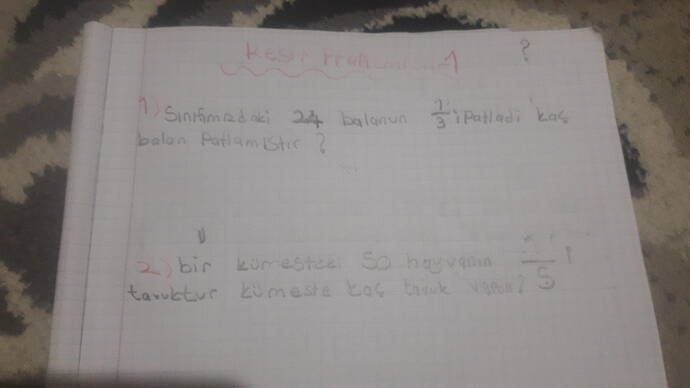 Kesir 1 ?
1) Sınıfımızdaki 24 balonun 1/3 i Patladı kaç
balon Patlamıştır ?
2) bir kümesteki 50 hayvanın /5 i
tavuktur kümeste kaç tavuk vardır?